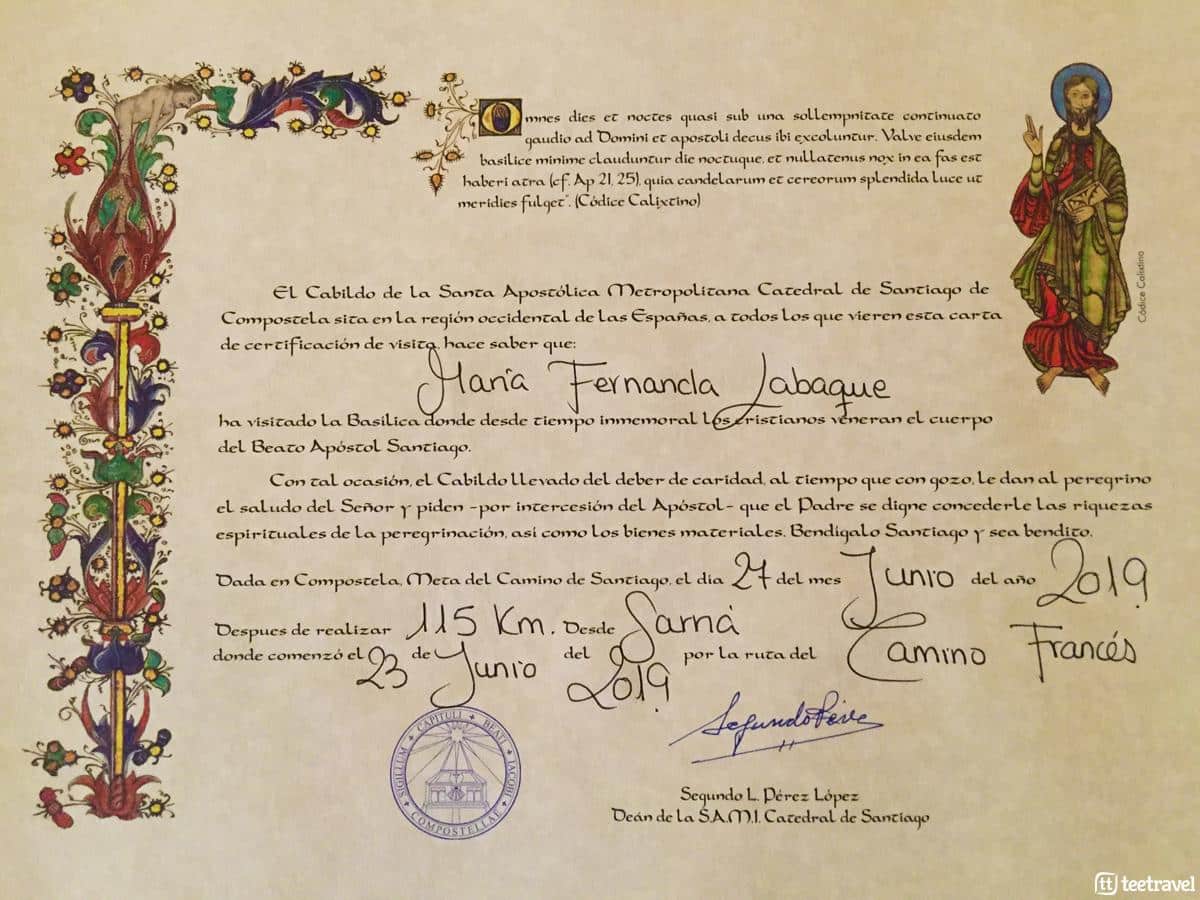 Omnes dies et noctes quasi sub una sollempnitate continuato
gaudio ad Domini et apostoli decus ibi excoluntur. Valve eiusdem
basilice minime clauduntur die noctuque, et nullatenus nox in ea fas est
haberi atra (cf. Ap 21, 25), quia candelarum et cereorum splendida luce ut
meridies fulget". (Códice Calixtino)
Códice Calixtino
El Cabildo de la Santa Apostólica Metropolitana Catedral de Santiago de
Compostela sita en la región occidental de las Españas, a todos los que vieren esta carta
de certificación de visita, hace saber que:
María Fernanda Labaque
ha visitado la Basilica donde desde tiempo inmemoral los cristianos veneran el cuerpo
del Beato Apóstol Santiago.
Con tal ocasión, el Cabildo llevado del deber de caridad, al tiempo que con gozo, le dan al peregrino
el saludo del Señor y piden -por intercesión del Apóstol- que el Padre se digne concederle las riquezas
espirituales de la peregrinación, así como los bienes materiales. Bendígalo Santiago y sea bendito.
Dada en Compostela, Meta del Camino de Santiago, el día 27 del mes Junio del año 2019
Despues de realizar 115 Km. Desde Sarriá
donde comenzó el 23 de Junio del 2019 por la ruta del Camino Francés
SIGILLUM CAPITULI BEATI IACOBI COMPOSTELLAE
Segundo Pérez
Segundo L. Pérez López
Deán de la S.A.M.I. Catedral de Santiago
tt teetravel